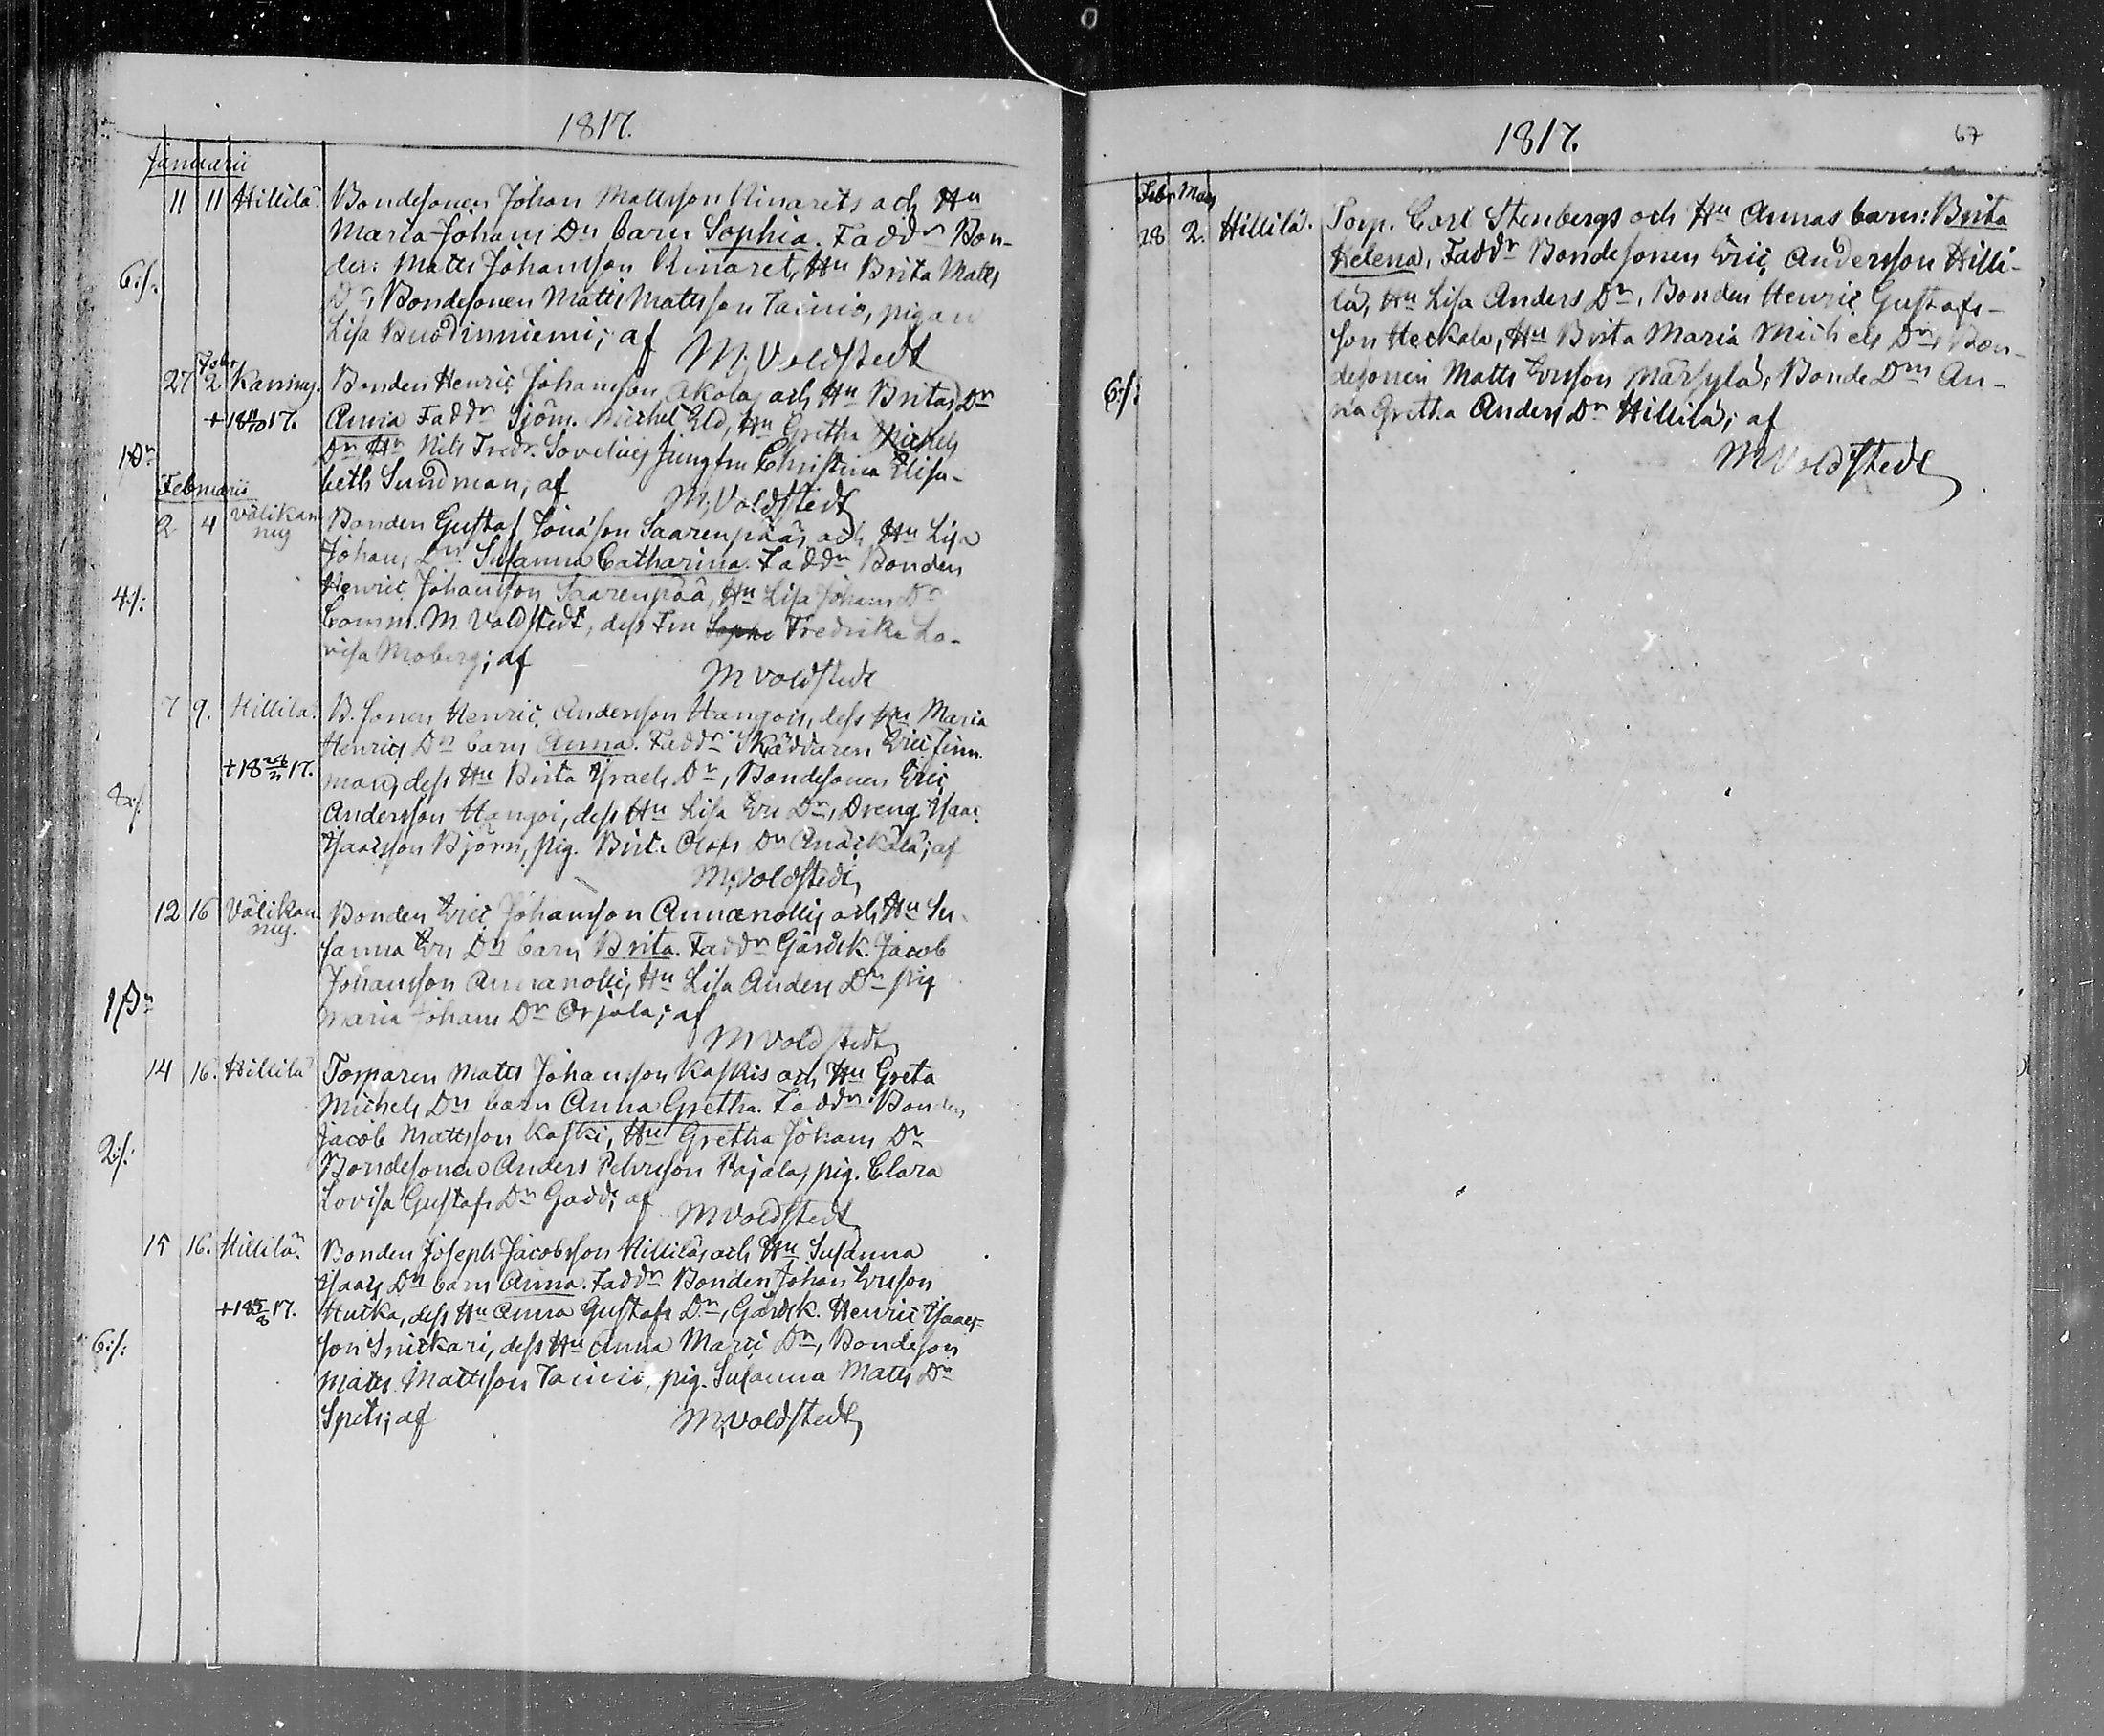 1817.
Januarii
11 11 Hillilä. Bondesonen Johan Mattsson Kinarets och Hu
Maria Johans Dn barn Sophia. Faddr Bon-
den: Matts Johansson Kinaret, Hu Brita Matts
6:/: Dr, Bondesonen Matts Mattsson Tainio, pigan
Lisa ; af M. Voldstedt
27 Febr 2 Kannus. Bonden Henric Johansson Akola, och Hu Britas Dn
+18 17. Anna Faddr Sjöm. Michel Eld, Hu Gretha Michels
1 Dn Dn Hr Nils Fredr. Sovelius Jungfru Christina Elisa-
beth Sundman; af M. Voldstedt
Februarii
2 4 Välikan
nus Bonden Gustaf Jonasson Saarenpääs och Hu Lisa
Johans Dn Susanna Catharina. Faddr Bonden
4:/: Henric Johansson Saarenpää, Hu Lisa Johans Dr
Comm. M. Voldstedt, dess Fru Sophi Fredrika Lo-
visa Moberg; af M Voldstedt
7 9. Hillilä. B. sonen Henric Andersson Hangois, dess Hu Maria
Henrics Dn barn Anna. Faddr Skäddaren Eric Finn-
+18 26/2 17. man, dess Hu Brita Israels Dr, Bondesonen Eric
8:/: Andersson Hangoi, dess Hu Lisa Ers Dn, Dreng. Isaac
Isaacsson Björn, pig. Brita Olofs Dn ; af
M. Voldstedt
12 16 Välikan-
nus. Bonden Eric Johansson Annanollis och Hu Su-
sanna Ers Dn barn Brita. Faddr Gårdk. Jacob
Johansson Annanolli, Hu Lisa Anders Dn pig
Maria Johans Dr Orjala; af
M Voldstedt
14 16. Hillilä Torparen Matts Johansson Kaskis och Hu Greta
Michels Dn barn Anna Gretha. Faddr Bonden
2:/: Jacob Mattsson Kaski, Hu Gretha Johans Dr
Bondesonen Anders Pehrsson Pajala, pig. Clara
Lovisa Gustafs Dn Gadd; af M Voldstedt
15 16. Hillilä. Bonden Joseph Jacobsson Hilliläs och Hu Susanna
Isaacs Dn barn Anna. Faddr Bonden Johan Ersson
+18 5/8 17. Hutka, dess Hu Anna Gustafs Dn, Gårdk. Henric Isaacs-
6:/: son Snickari, dess Hu Anna Marci Dn, Bondeson
Matts Mattsson Tainio, pig. Susanna Matts Dn
Spets; af M. Voldstedt
1817. 67
Febr. Mars
28 2. Hillilä. Torp. Carl Stenbergs och Hu Annas barn: Brita
Helena, Faddr Bondesonen Eric Andersson Hilli-
lä, Hu Lisa Anders Dn, Bonden Henric Gustafs-
son Heckala, Hu Brita Maria Michels Dn, Bon-
6:/: desonen Matts Ersson Märsylä, Bonde Dn An-
na Gretha Anders Dn Hillilä; af
M Voldstedt